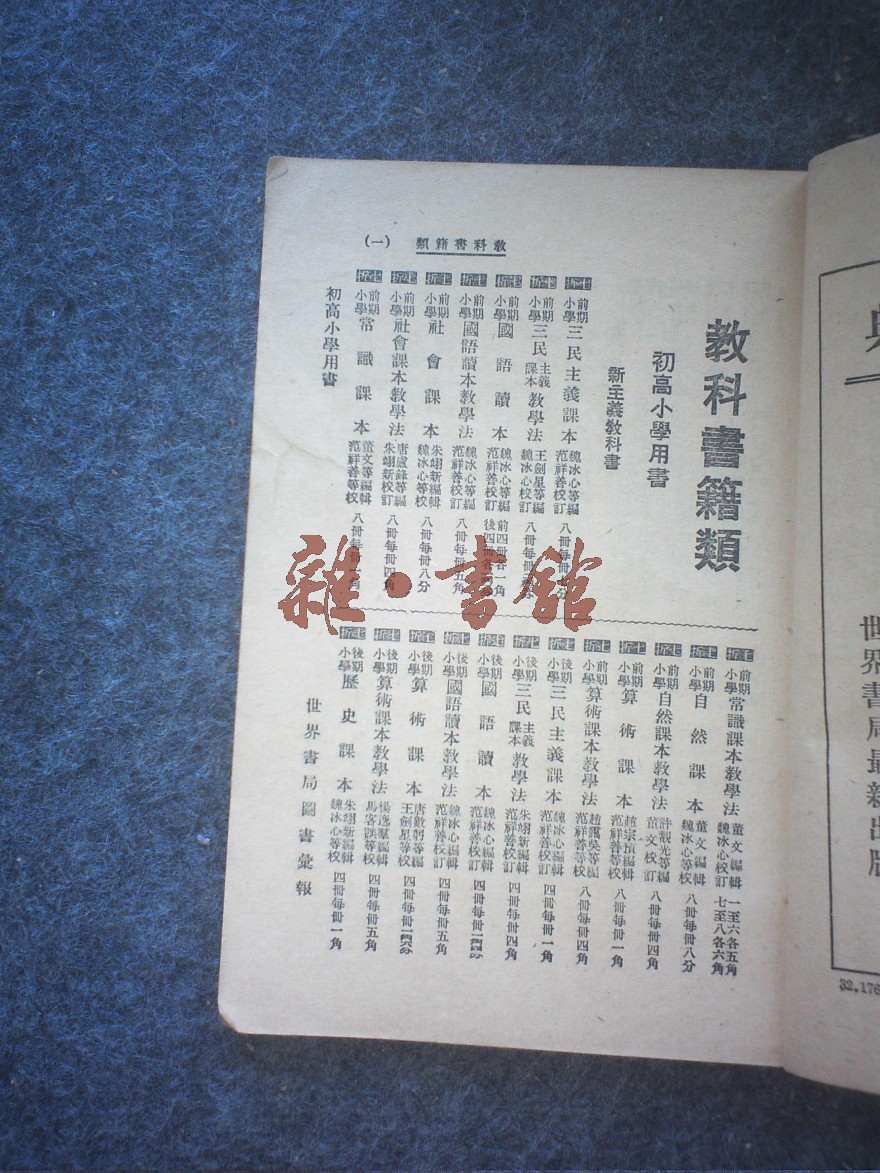 教科書籍類 (一)
教科書籍類
初高小學用書
新主義教科書
七折 前期小學 三民主義課本 魏冰心等編 范祥善校訂 八冊每冊
七折 前期小學 三民主義課本教學法 王劍星等編 魏冰心校訂 八冊每冊
七折 前期小學 國語讀本 魏冰心等編 范祥善校訂 前四冊各一角 後四冊各
七折 前期小學 國語讀本教學法 魏冰心等編 范祥善校訂 八冊每冊五角
七折 前期小學 社會課本 朱翊新編輯 魏冰心等校 八冊每冊八分
七折 前期小學 社會課本教學法 唐盧鋒等編 朱翊新校訂 八冊每冊四角
七折 前期小學 常識課本 董文等編輯 范祥善等校 八冊每冊一角
初高小學用書
七折 前期小學 常識課本教學法 董文編輯 魏冰心校訂 一至六各五角 七至八各六角
七折 前期小學 自然課本 董文編輯 魏冰心等校 八冊每冊八分
七折 前期小學 自然課本教學法 許觀光等編 董文校訂 八冊每冊四角
七折 前期小學 算術課本 趙宗預編輯 范祥善等校 八冊每冊一角
七折 前期小學 算術課本教學法 趙靄吳等編 范祥善等校 八冊每冊四角
七折 後期小學 三民主義課本 魏冰心編輯 范祥善校訂 四冊每冊一角
七折 後期小學 三民主義課本教學法 朱翊新編輯 范祥善校訂 四冊每冊四角
七折 後期小學 國語讀本 魏冰心編輯 范祥善校訂 四冊每冊一角四分
七折 後期小學 國語讀本教學法 魏冰心等編 范祥善校訂 四冊每冊五角
七折 後期小學 算術課本 唐數躬等編 王劍星等校 四冊每冊一角六分
七折 後期小學 算術課本教學法 楊逸羣編輯 馬客談等校 四冊每冊五角
七折 後期小學 歷史課本 朱翊新編輯 魏冰心等校 四冊每冊一角
世界書局圖書彙報
世界書局最新出版
32.176
雜·書館